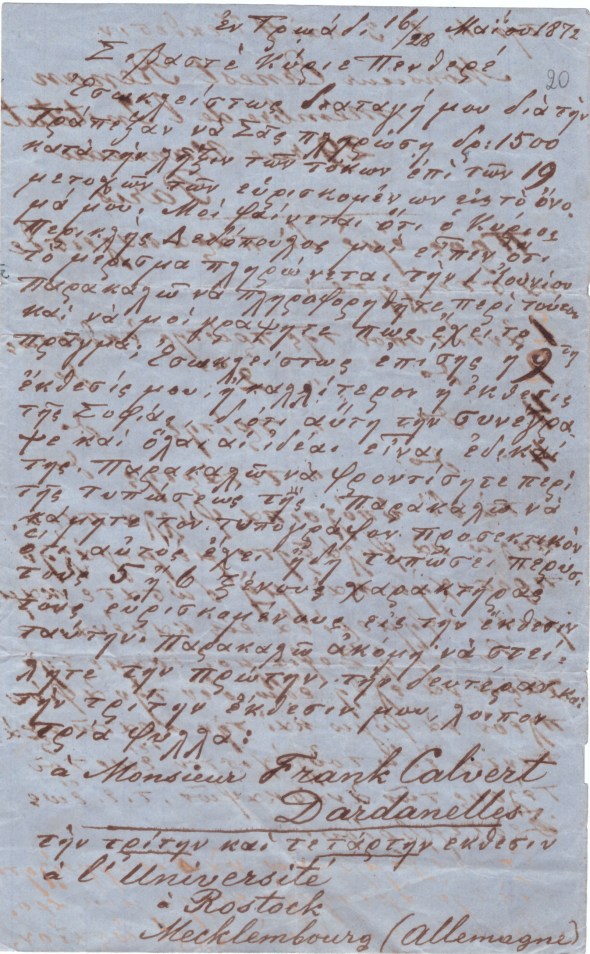 ἐν Τρωάδι 16/28 Μαΐου 1872
20
Σεβαστὲ Κύριε Πενθερέ
Ἐσωκλείστως διαταγή μου διὰ τὴν
Τράπεζαν νὰ Σᾶς πληρώσῃ δρ: 1500
κατὰ τὴν λῆξιν τῶν τόκων ἐπὶ τῶν 19
μετοχῶν τῶν εὑρισκομένων εἰς τὸ ὄνο-
μά μου. Μοὶ φαίνεται ὅτι ὁ Κύριος
Περικλῆς μοὶ εἶπεν ὅτι
τὸ μέρισμα πληρώνεται τὴν 1 Ἰουνίου
παρακαλῶ νὰ πληροφορηθῆτε περὶ τούτου
καὶ νὰ μοὶ γράψητε πῶς ἔχει τὸ
πρᾶγμα. Ἐσωκλείστως ἐπίσης ἡ 19τη
ἔκθεσίς μου, ἢ καλλίτερον ἡ ἔκθεσις
τῆς Σοφίας, διότι αὕτη τὴν συνέγρα
ψε καὶ ὅλαι αἱ ἰδέαι εἶναι ἐδικαί
της. Παρακαλῶ νὰ φροντίσητε περὶ
τῆς τυπώσεώς της. Παρακαλῶ νὰ
κάμητε τὸν τυπογράφον προσεκτικὸν
ὅτι αὐτὸς ἔχει ἤδη τυπώσει πέρυσι
τοὺς 5 ἢ 6 ξένους χαρακτῆρας
τοὺς εὑρισκομένους εἰς τὴν ἔκθεσιν
ταύτην. Παρακαλῶ ἀκόμη νὰ στεί-
λητε τὴν πρώτην, τὴν δευτέραν καὶ
τὴν τρίτην ἔκθεσίν μου, λοιπὸν
τρία φύλλα:
à Monsieur Frank Calvert
Dardanelles.
τὴν τρίτην καὶ τετάρτην ἔκθεσιν
à l'Université
à Rostock
Mecklembourg (Allemagne)